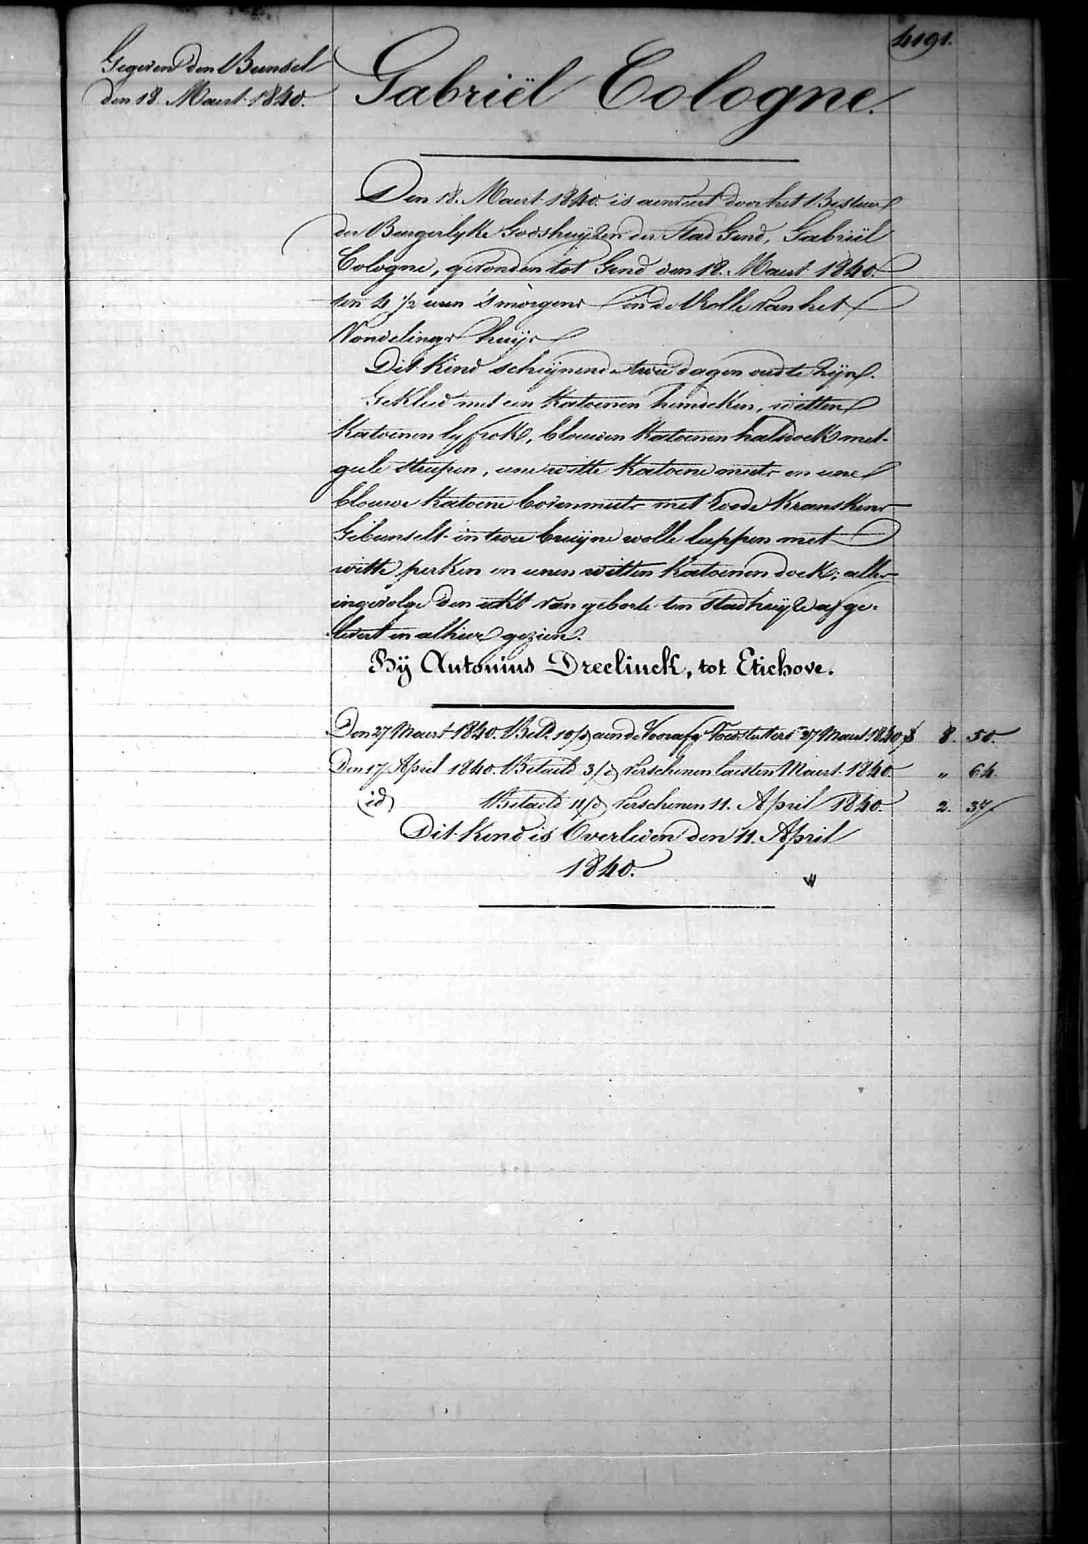 4191.
Gegeven den Bunsel
den 18. Maert 1840.
Gabriël Cologne.
Den 18. Maert 1840. is aenveert door het Bestuur
der Burgerlyke Godshuyzen der Stad Gend, Gabriël
Cologne, gevonden tot Gend den 18. Maert 1840.
ten 4 1/2 uren 's morgens in de Rolle van het
Vondelings huys
Dit Kind schynende twee dagen oud te zyn.
Gekleed met een Katoenen hemdeken, witten
Katoenen lyfrok, blauwen Katoenen halsdoek met
gele streepen, eene witte Katoene muts en eene
blauwe Katoene bovenmuts met roode Kranskens
Gebunselt in twee bruyne wolle lappen met
witte perken en eenen witten Katoenen doek; alles
ingevolge den akt van geboorte ten stadhuyze afge-
levert en alhier gezien.
Bÿ Antonius Dreelinck, tot Etichove.
Den 27 Maert 1840. Bet. 10/d aen de Voorafg Voedsters 27 Maert 1840 8. 50.
Den 17 April 1840. Betaeld 3/d verschenen laesten Maert 1840. " 64.
(id) Betaeld 11/d verschenen 11. April 1840. 2. 37
Dit Kind is Overleden den 11. April
1840.